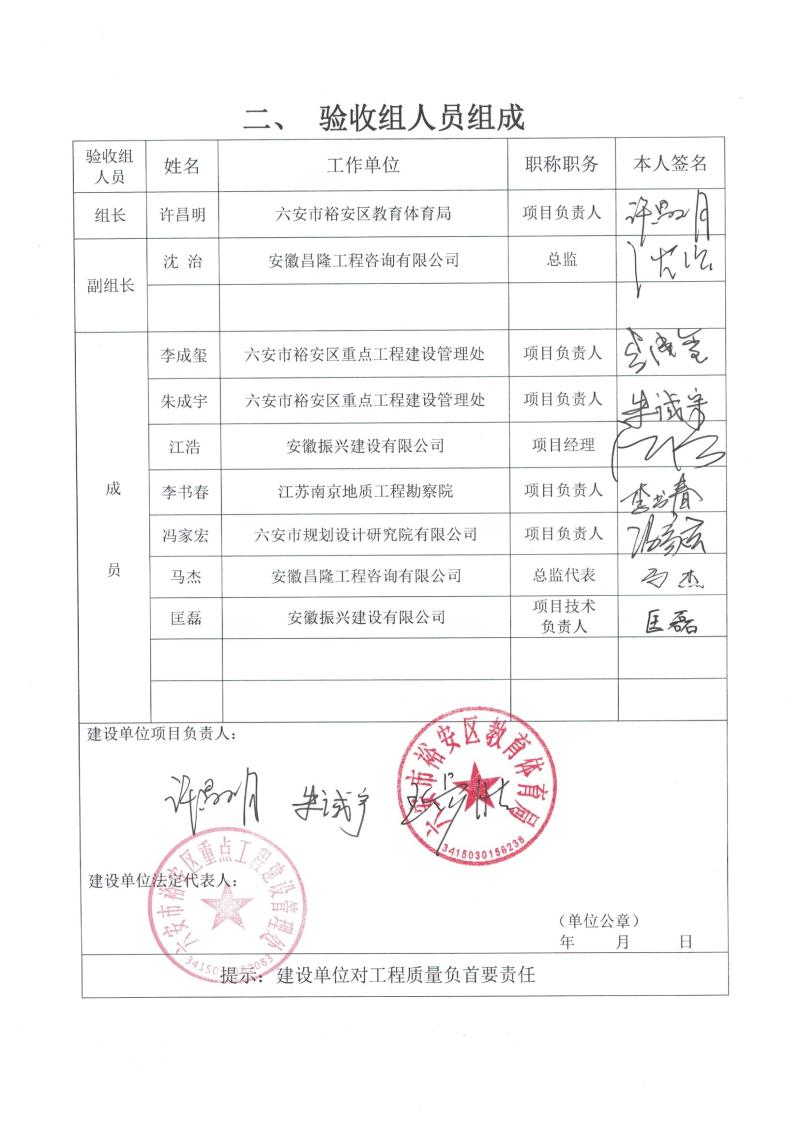 二、 验收组人员组成
验收组人员 姓名 工作单位 职称职务 本人签名
组长 许昌明 六安市裕安区教育体育局 项目负责人 许昌明
副组长 沈 治 安徽昌隆工程咨询有限公司 总监 沈治
成员
李成玺 六安市裕安区重点工程建设管理处 项目负责人
朱成宇 六安市裕安区重点工程建设管理处 项目负责人 朱诚宇
江浩 安徽振兴建设有限公司 项目经理 江浩
李书春 江苏南京地质工程勘察院 项目负责人 李书春
冯家宏 六安市规划设计研究院有限公司 项目负责人 冯家宏
马杰 安徽昌隆工程咨询有限公司 总监代表 马杰
匡磊 安徽振兴建设有限公司 项目技术负责人 匡磊
建设单位项目负责人:
许昌明 朱诚宇
六安市裕安区教育体育局
3415030156238
建设单位法定代表人:
六安市裕安区重点工程建设管理处
(单位公章)
年 月 日
提示: 建设单位对工程质量负首要责任